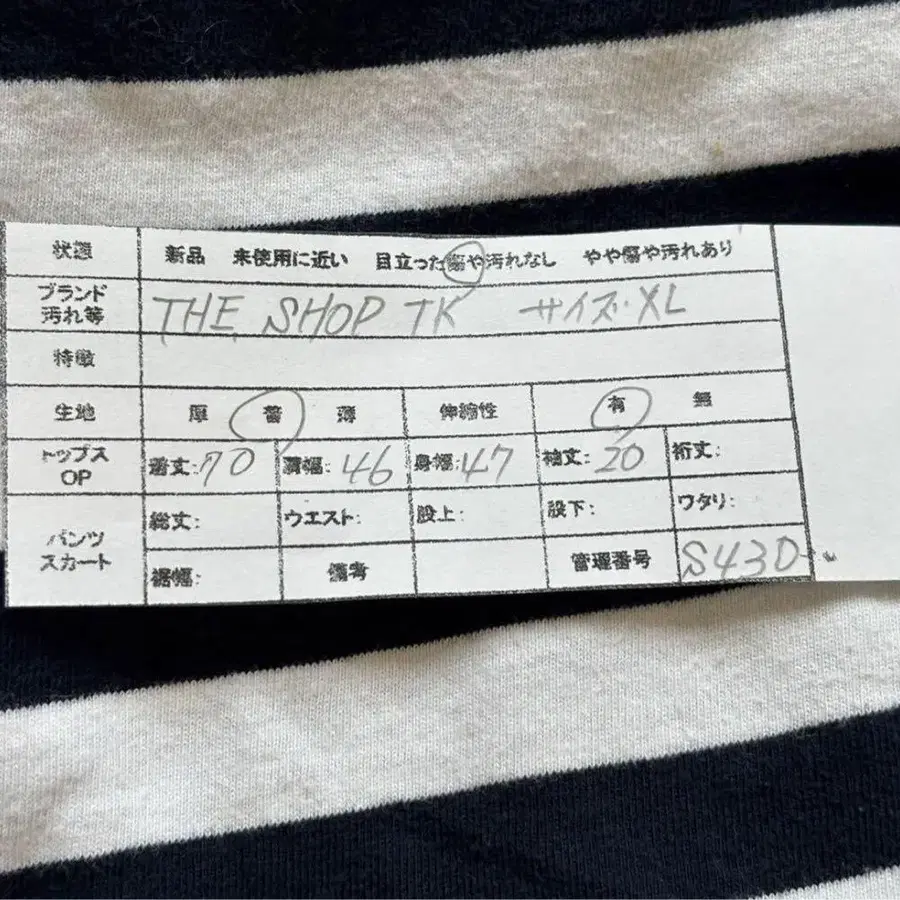 状態 新品 未使用に近い 目立った傷や汚れなし やや傷や汚れあり
ブランド
汚れ等 THE SHOP TK サイズ・XL
特徴
生地 厚 普 薄 伸縮性 有 無
トップス
OP 着丈:70 肩幅:46 身幅:47 袖丈:20 裄丈:
パンツ
スカート 総丈: ウエスト: 股上: 股下: ワタリ:
裾幅: 備考 管理番号 S430-